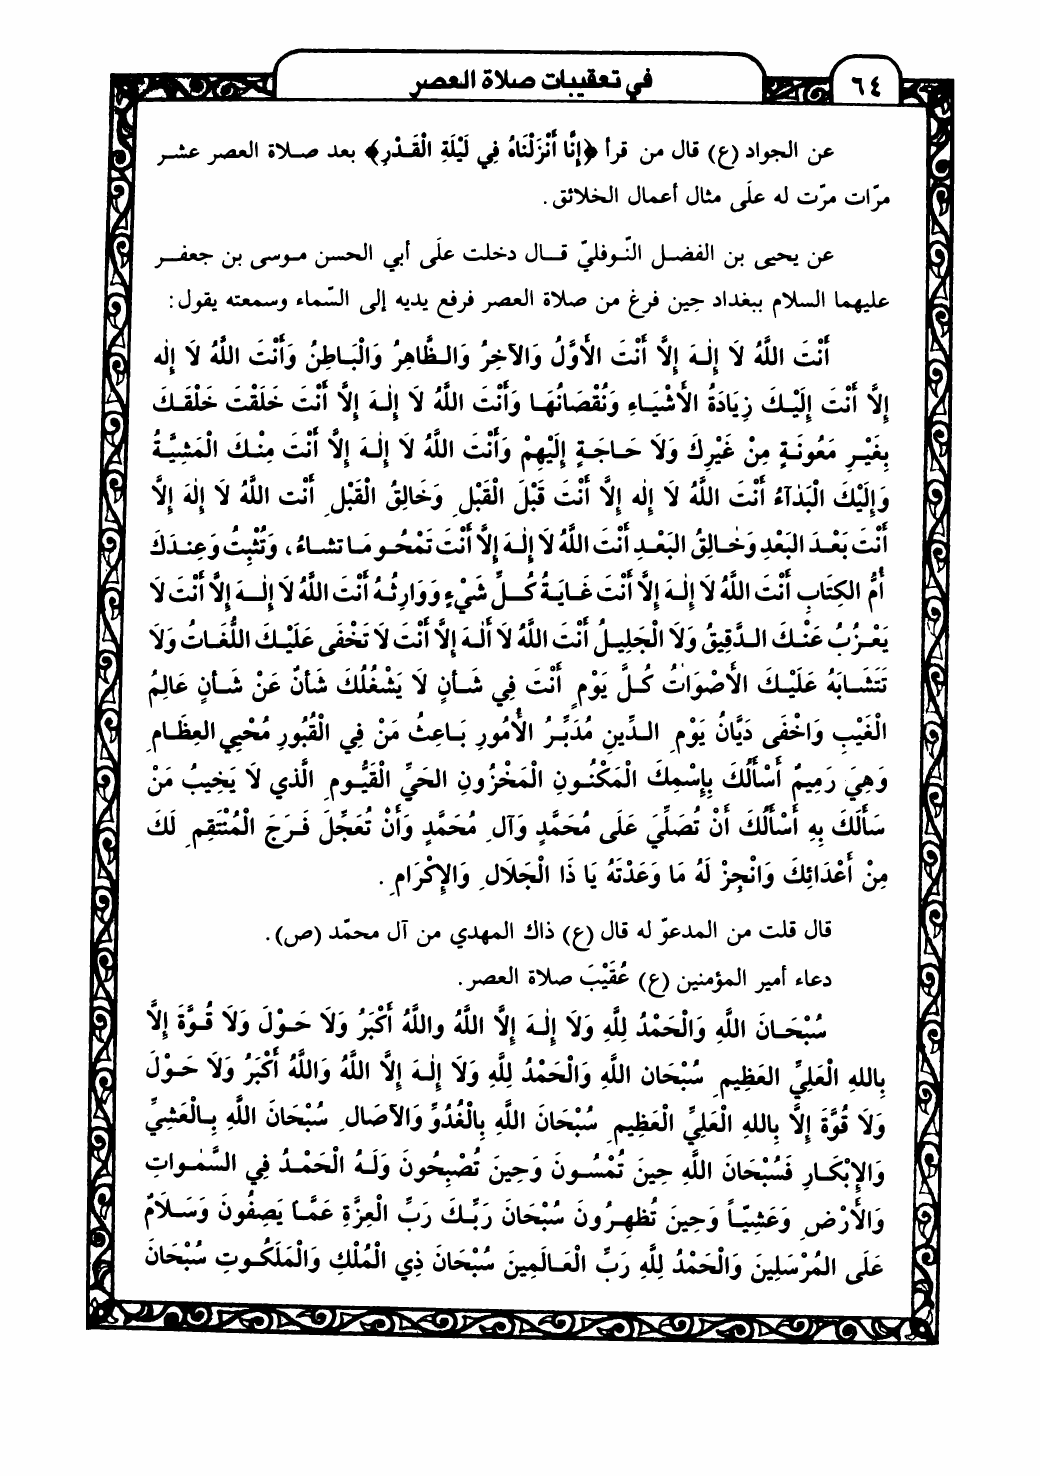 في تعقيبات صلاة العصر
٦٤
عن الجواد (ع) قال من قرأ ﴿إِنَّا أَنْزَلْنَاهُ فِي لَيْلَةِ الْقَدْرِ﴾ بعد صلاة العصر عشر
مرّات مرّت له علَى مثال أعمال الخلائق.
عن يحيى بن الفضل النّوفليّ قال دخلت علَى أبي الحسن موسى بن جعفر
عليهما السلام ببغداد حِين فرغ من صلاة العصر فرفع يديه إلى السَّماء وسمعته يقول:
أَنْتَ اللَّهُ لَا إِلٰهَ إِلَّا أَنْتَ الأَوَّلُ وَالآخِرُ وَالظَّاهِرُ وَالْبَاطِنُ وَأَنْتَ اللَّهُ لَا إِله
إِلَّا أَنْتَ إِلَيْكَ زِيَادَةُ الأَشْيَاءِ وَنُقْصَانُهَا وَأَنْتَ اللَّهُ لَا إِلٰهَ إِلَّا أَنْتَ خَلَقْتَ خَلْقَكَ
بِغَيْرِ مَعُونَةٍ مِنْ غَيْرِكَ وَلَا حَاجَةٍ إِلَيْهِمْ وَأَنْتَ اللَّهُ لَا إِلٰهَ إِلَّا أَنْتَ مِنْكَ الْمَشِيَّةُ
وَإِلَيْكَ الْبَدَآءُ أَنْتَ اللَّهُ لَا إِله إِلَّا أَنْتَ قَبْلَ الْقَبْلِ وَخَالِقُ الْقَبْلِ أَنْت اللَّهُ لَا إِلٰهَ إِلَّا
أَنْتَ بَعْدَ البَعْدِ وَخَالِقُ البَعْدِ أَنْتَ اللَّهُ لَا إِلٰهَ إِلَّا أَنْتَ تَمْحُو مَا تشاءُ، وَتُثْبِتُ وَعِنْدَكَ
أُمُّ الكِتَابِ أَنْتَ اللَّهُ لَا إِلٰهَ إِلَّا أَنْتَ غَايَةُ كُلِّ شَيْءٍ وَوَارِثُهُ أَنْتَ اللَّهُ لَا إِلٰهَ إِلَّا أَنْتَ لَا
يَعْزُبُ عَنْكَ الدَّقِيقُ وَلَا الْجَلِيلُ أَنْتَ اللَّهُ لَا أَلٰهَ إِلَّا أَنْتَ لَا تَخْفَى عَلَيْكَ اللُّغَاتُ وَلَا
تَتَشَابَهُ عَلَيْكَ الأَصْوَاتُ كُلَّ يَوْمٍ أَنْتَ فِي شَأنٍ لَا يَشْغُلُكَ شَأنٌ عَنْ شَأنٍ عَالِمُ
الْغَيْبِ وَاخْفَى دَيَّانُ يَوْمِ الدِّينِ مُدَبِّرُ الأُمُورِ بَاعِثُ مَنْ فِي الْقُبُورِ مُحْيِي العِظَامِ
وَهِيَ رَمِيمٌ أَسْأَلُكَ بِإِسْمِكَ الْمَكْنُونِ الْمَخْزُونِ الحَيِّ الْقَيُّومِ الَّذي لَا يَخِيبُ مَنْ
سَأَلَكَ بِهِ أَسْأَلُكَ أَنْ تُصَلِّيَ عَلَى مُحَمَّدٍ وَآلِ مُحَمَّدٍ وَأَنْ تُعَجِّلَ فَرَجَ الْمُنْتَقِمِ لَكَ
مِنْ أَعْدَائِكَ وَانْجِزْ لَهُ مَا وَعَدْتَهُ يَا ذَا الْجَلَالِ وَالإِكْرَامِ.
قال قلت من المدعوّ له قال (ع) ذاك المهدي من آل محمّد (ص).
دعاء أمير المؤمنين (ع) عُقَيْبَ صلاة العصر.
سُبْحَانَ اللَّهِ وَالْحَمْدُ لِلَّهِ وَلَا إِلٰهَ إِلَّا اللَّهُ واللَّهُ أَكْبَرُ وَلَا حَوْلَ وَلَا قُوَّةَ إِلَّا
بِاللهِ الْعَلِيِّ العَظِيمِ سُبْحَان اللَّهِ وَالْحَمْدُ لِلَّهِ وَلَا إِلٰهَ إِلَّا اللَّهُ وَاللَّهُ أَكْبَرُ وَلَا حَوْلَ
وَلَا قُوَّةَ إِلَّا بِاللهِ الْعَلِيِّ الْعَظِيمِ سُبْحَانَ اللَّهِ بِالْغُدُوِّ وَالآصَالِ سُبْحَانَ اللَّهِ بِالْعَشِيِّ
وَالإِبْكَارِ فَسُبْحَانَ اللَّهِ حِينَ تُمْسُونَ وَحِينَ تُصْبِحُونَ وَلَهُ الْحَمْدُ فِي السَّمٰوَاتِ
وَالأَرْضِ وَعَشِيّاً وَحِينَ تُظهِرُونَ سُبْحَانَ رَبِّكَ رَبِّ الْعِزَّةِ عَمَّا يَصِفُونَ وَسَلَامٌ
عَلَى المُرْسَلِينَ وَالْحَمْدُ لِلَّهِ رَبِّ الْعَالَمِينَ سُبْحَانَ ذِي الْمُلْكِ وَالْمَلَكُوتِ سُبْحَانَ